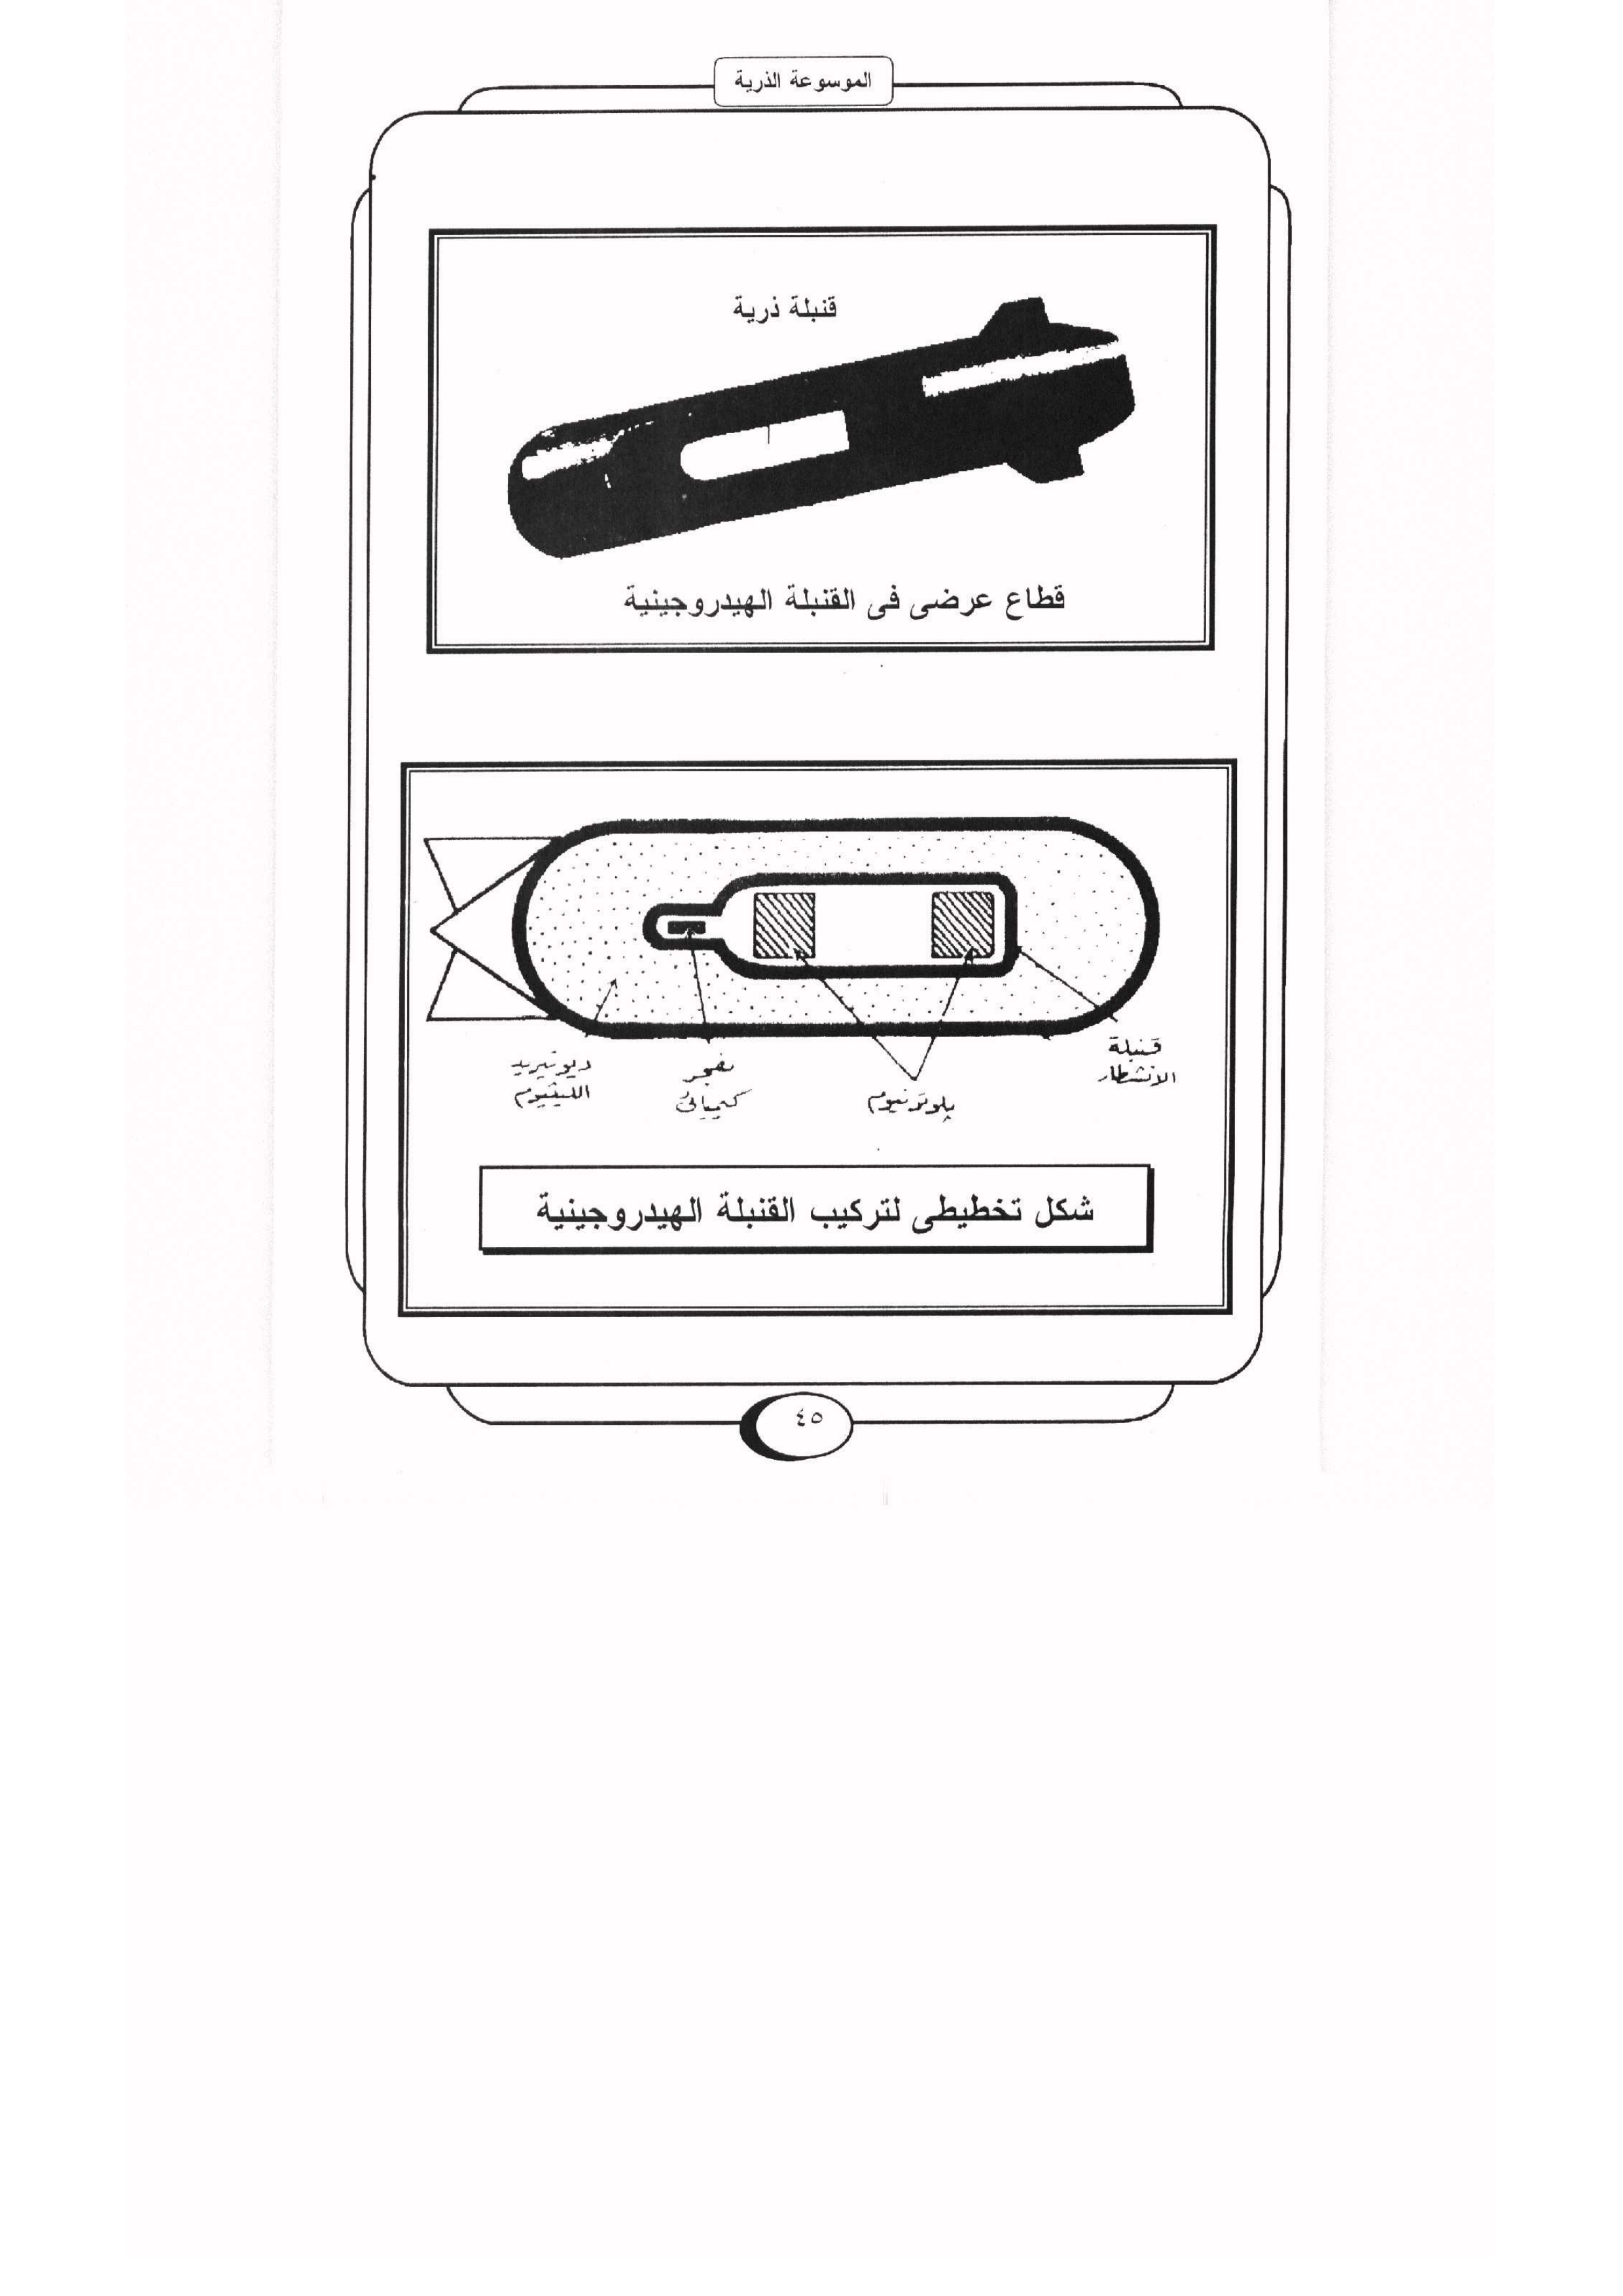 الموسوعة الذرية
قنبلة ذرية
قطاع عرضى فى القنبلة الهيدروجينية
قنبلة
الانشطار
بلوتونيوم
مفجر
كيميائى
ديوتيريد
الليثيوم
شكل تخطيطى لتركيب القنبلة الهيدروجينية
٤٥